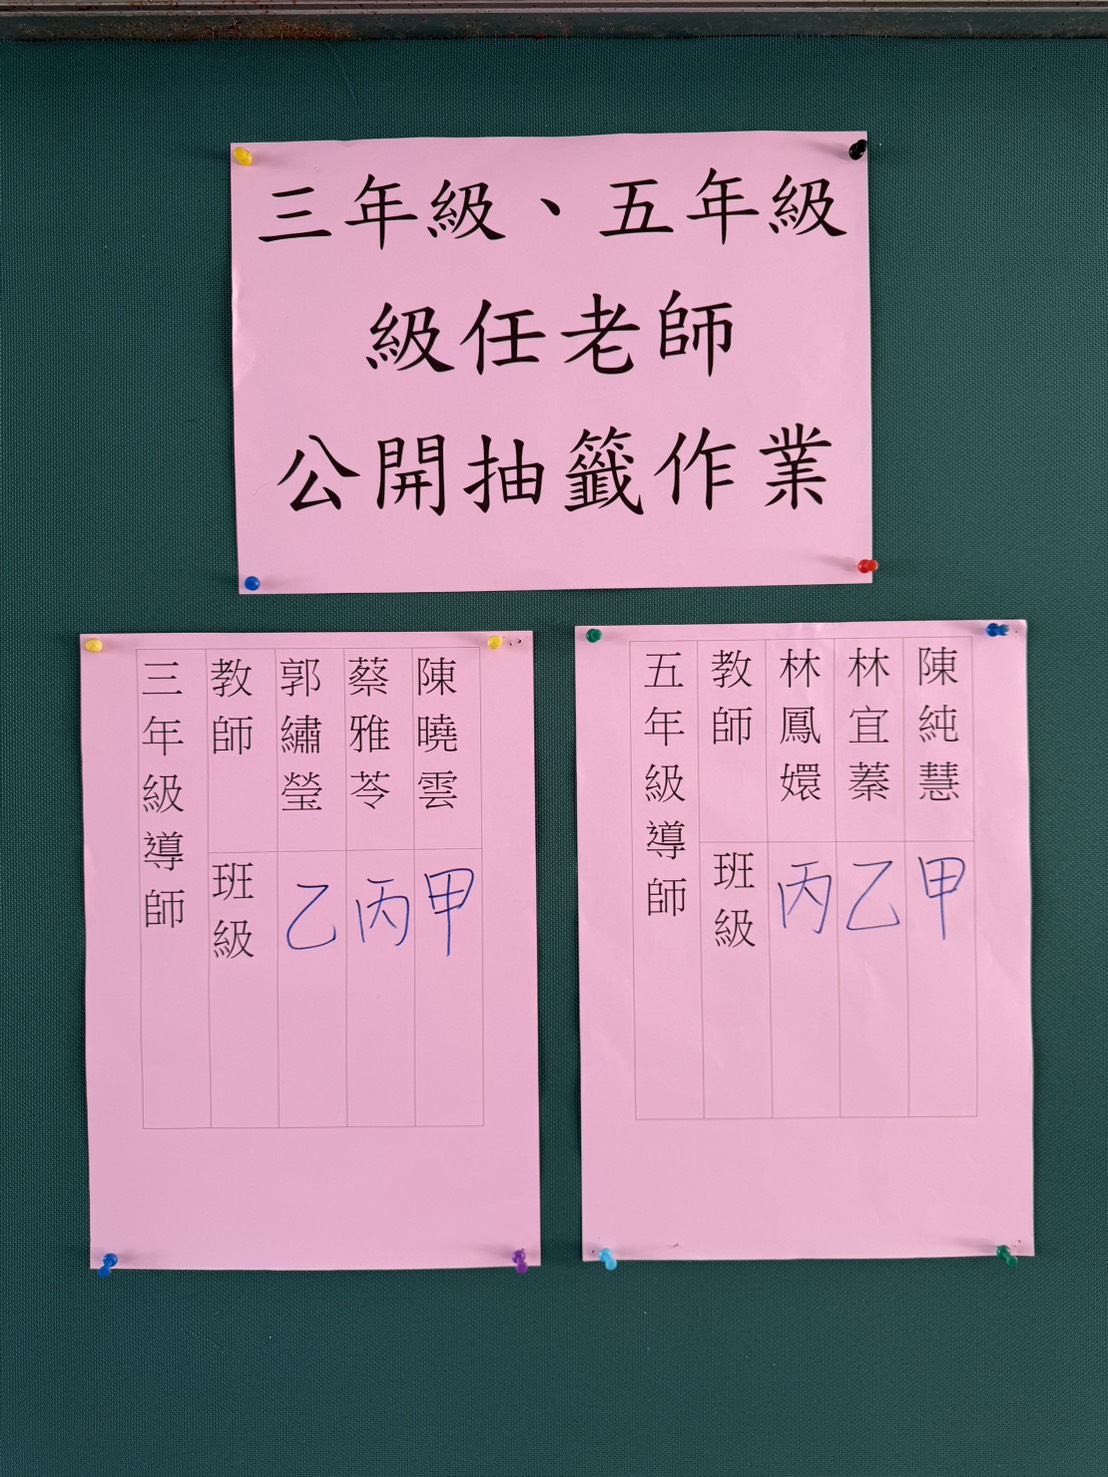 三年級、五年級
級任老師
公開抽籤作業
三年級導師
教師
班級
郭繡瑩
乙
蔡雅苓
丙
陳曉雲
甲
五年級導師
教師
班級
林鳳嬛
丙
林宜蓁
乙
陳純慧
甲